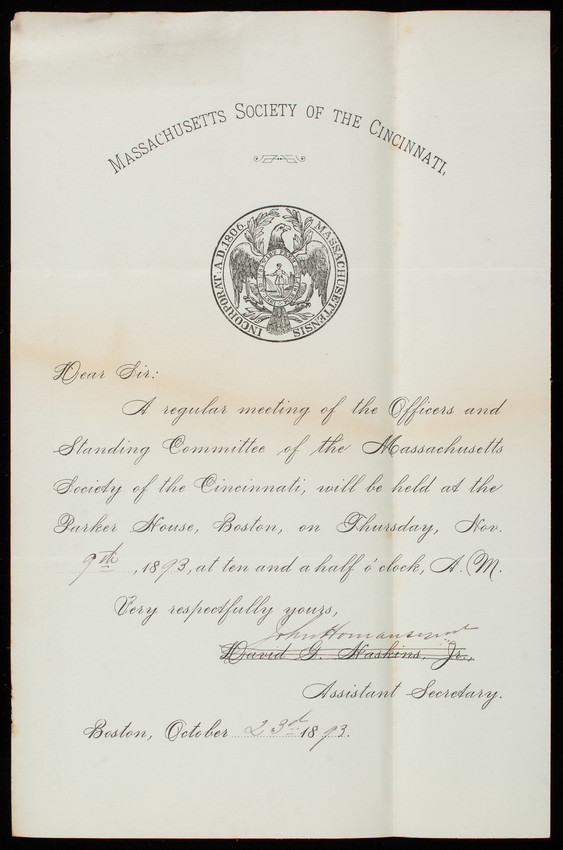 MASSACHUSETTS SOCIETY OF THE CINCINNATI,
INCORPORAT. A.D. 1806. MASSACHUSETTENSIS
Dear Sir:
A regular meeting of the Officers and
Standing Committee of the Massachusetts
Society of the Cincinnati, will be held at the
Parker House, Boston, on Thursday, Nov.
9th, 1893, at ten and a half o'clock, A. M.
Very respectfully yours,
John Homans
David G. Haskins, Jr.,
Assistant Secretary.
Boston, October 23d 1893.